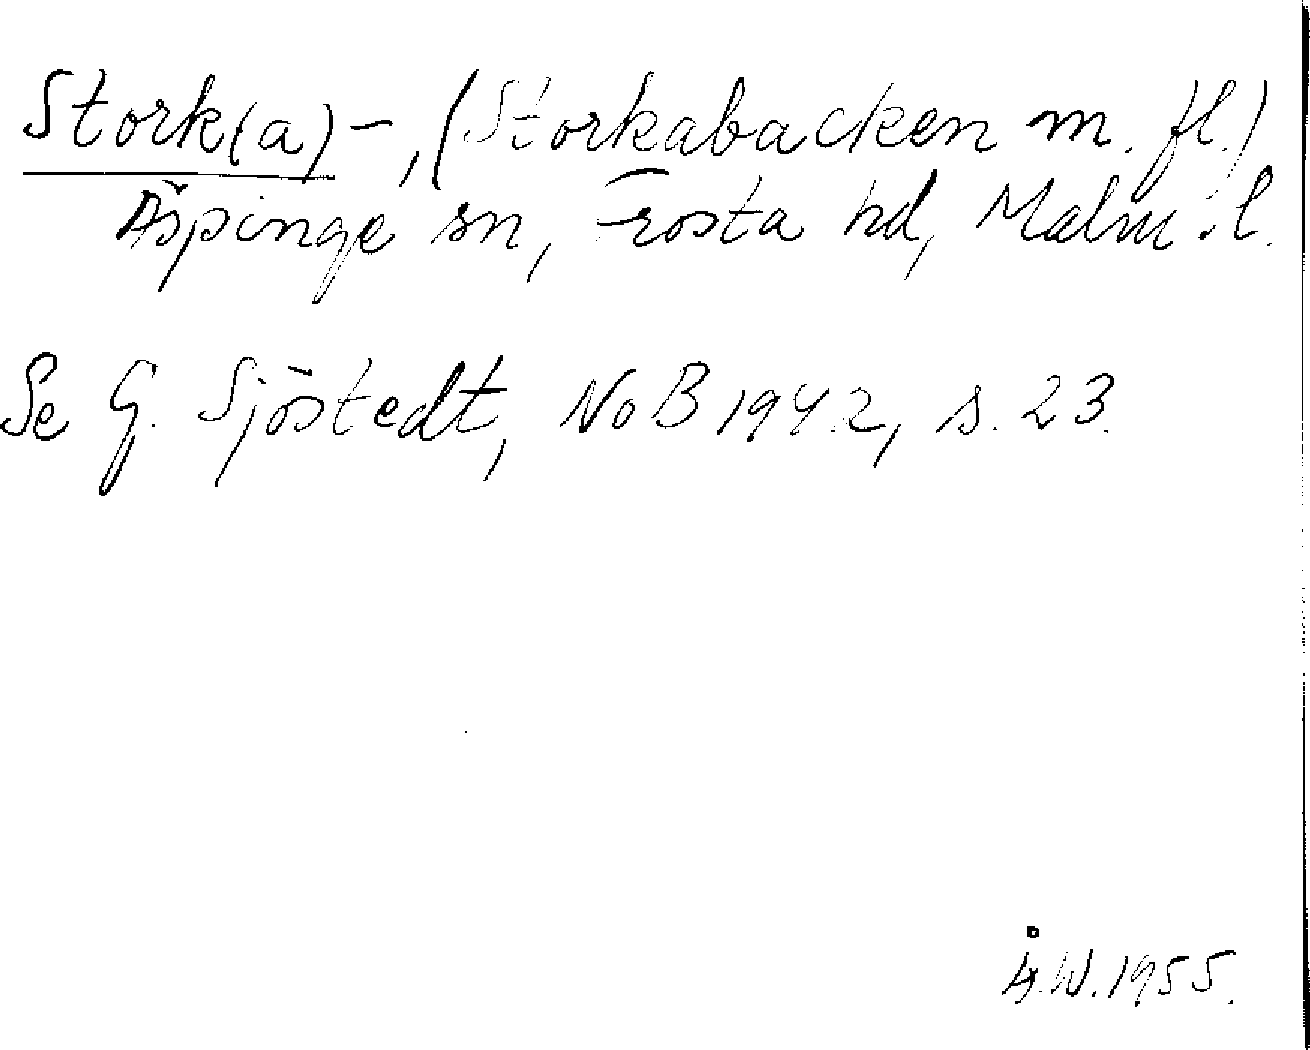 Stork(a)-, (Storkabacken m. fl.)
Äspinge sn, Frosta hd, Malm. l.
Se G. Sjöstedt, NoB 1942, s. 23.
Å.W. 1955.